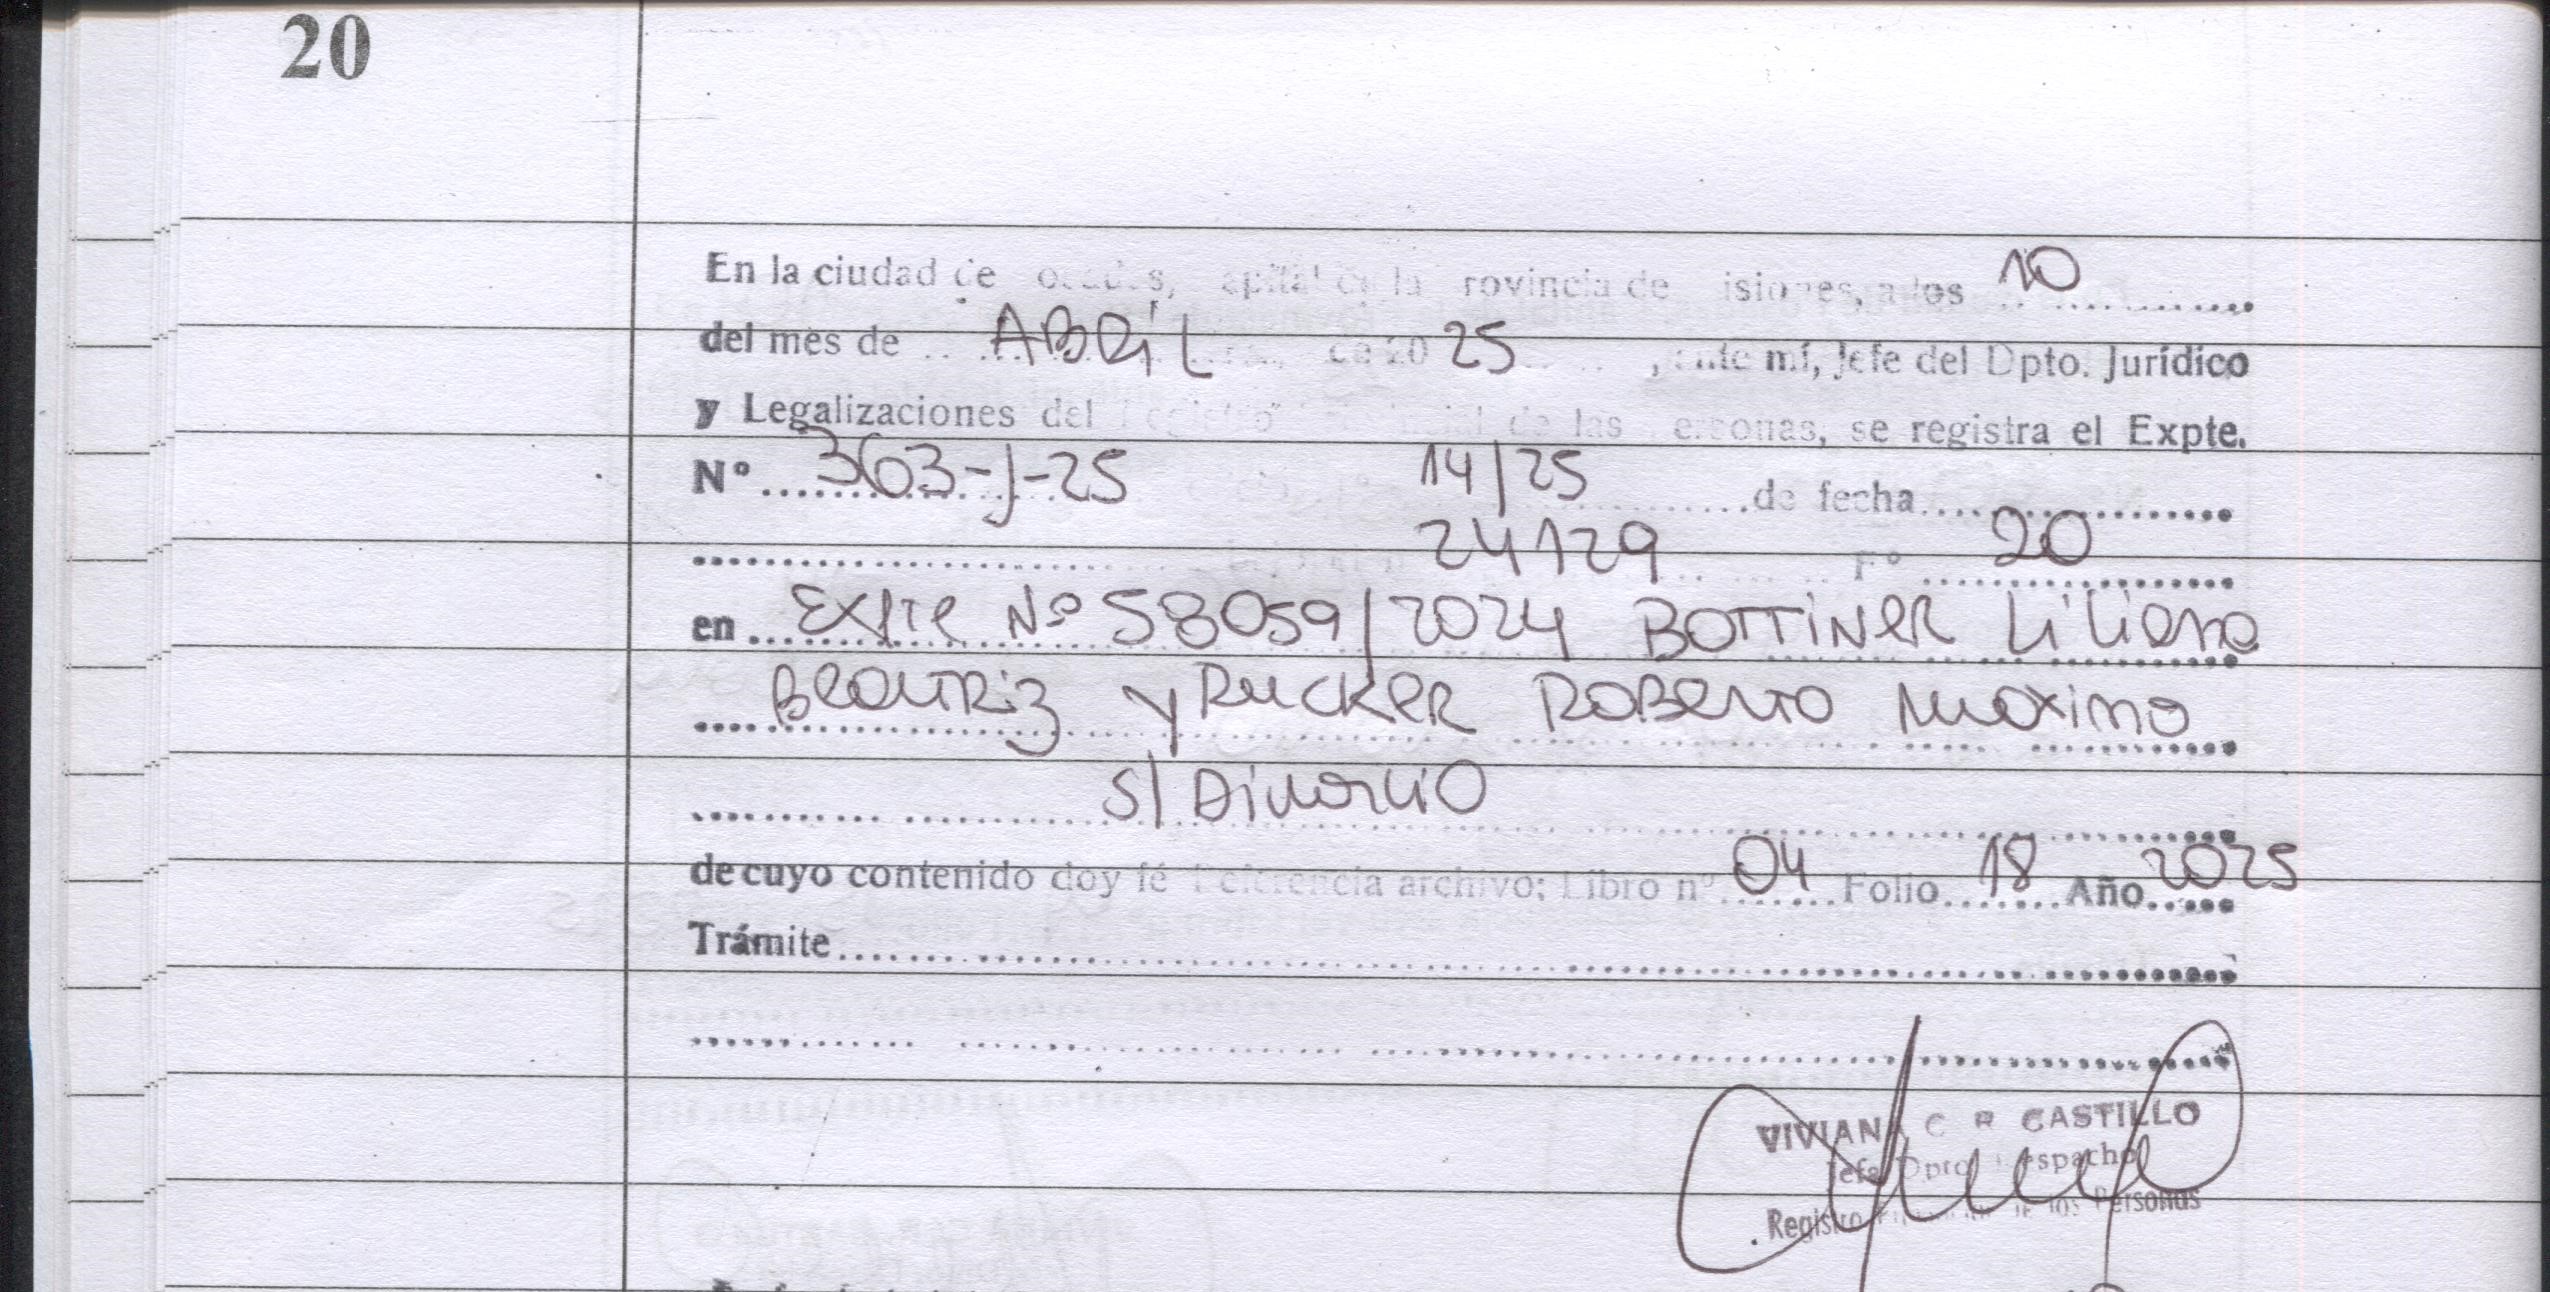 20
En la ciudad de Posadas, Capital de la Provincia de Misiones, a los 10
del mes de ABRIL de 20 25, ante mí, Jefe del Dpto. Jurídico
y Legalizaciones del Registro Provincial de las Personas, se registra el Expte.
Nº 363-J-25 14/25 de fecha
24129 Fº 20
en Expte Nº 58059/2024 BOTTINER Liliana
Beatriz y RUCKER ROBERTO Maximo
S/ Divorcio
de cuyo contenido doy fé Referencia archivo: Libro nº 04 Folio 18 Año 2025
Trámite
VIVIANA C R CASTILLO
Jefa Dpto Despacho
Registro de las Personas